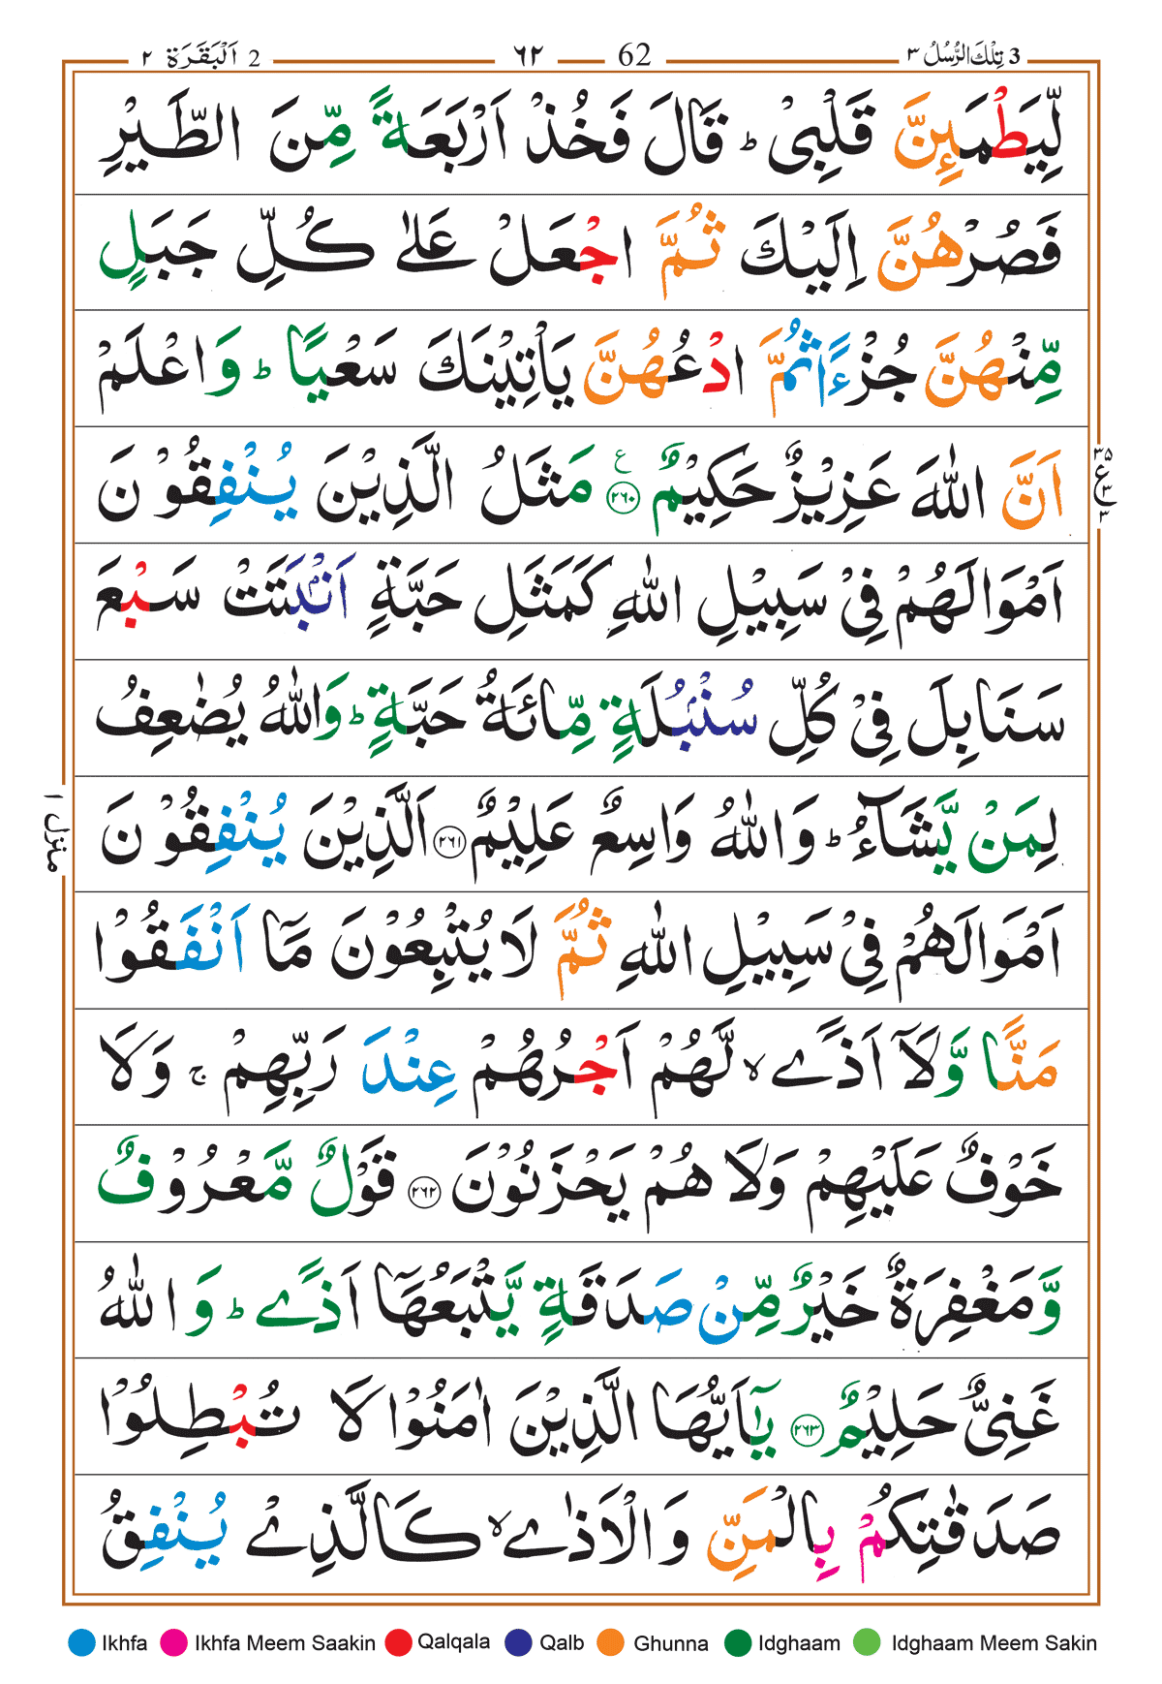 3 تِلْكَ الرُّسُلُ ٣ 62 ٦٢ 2 اَلْبَقَرَة ٢
لِّيَطْمَئِنَّ قَلْبِىْ ؕ قَالَ فَخُذْ اَرْبَعَةً مِّنَ الطَّيْرِ
فَصُرْهُنَّ اِلَيْكَ ثُمَّ اجْعَلْ عَلٰى كُلِّ جَبَلٍ
مِّنْهُنَّ جُزْءًا ثُمَّ ادْعُهُنَّ يَاْتِيْنَكَ سَعْيًا ؕ وَاعْلَمْ
اَنَّ اللّٰهَ عَزِيْزٌ حَكِيْمٌ ع ﴿٢٦٠﴾ مَثَلُ الَّذِيْنَ يُنْفِقُوْنَ
٣٥ ع ٣ ٣
اَمْوَالَهُمْ فِىْ سَبِيْلِ اللّٰهِ كَمَثَلِ حَبَّةٍ اَنْۢبَتَتْ سَبْعَ
سَنَابِلَ فِىْ كُلِّ سُنْۢبُلَةٍ مِّائَةُ حَبَّةٍ ؕ وَاللّٰهُ يُضٰعِفُ
لِمَنْ يَّشَآءُ ؕ وَاللّٰهُ وَاسِعٌ عَلِيْمٌ ﴿٢٦١﴾ اَلَّذِيْنَ يُنْفِقُوْنَ
منزل ١
اَمْوَالَهُمْ فِىْ سَبِيْلِ اللّٰهِ ثُمَّ لَا يُتْبِعُوْنَ مَاۤ اَنْفَقُوْا
مَنًّا وَّلَاۤ اَذًى ۙ لَّهُمْ اَجْرُهُمْ عِنْدَ رَبِّهِمْ ۚ وَلَا
خَوْفٌ عَلَيْهِمْ وَلَا هُمْ يَحْزَنُوْنَ ﴿٢٦٢﴾ قَوْلٌ مَّعْرُوْفٌ
وَّمَغْفِرَةٌ خَيْرٌ مِّنْ صَدَقَةٍ يَّتْبَعُهَاۤ اَذًى ؕ وَاللّٰهُ
غَنِىٌّ حَلِيْمٌ ﴿٢٦٣﴾ يٰۤاَيُّهَا الَّذِيْنَ اٰمَنُوْا لَا تُبْطِلُوْا
صَدَقٰتِكُمْ بِالْمَنِّ وَالْاَذٰى ۙ كَالَّذِىْ يُنْفِقُ
Ikhfa Ikhfa Meem Saakin Qalqala Qalb Ghunna Idghaam Idghaam Meem Sakin